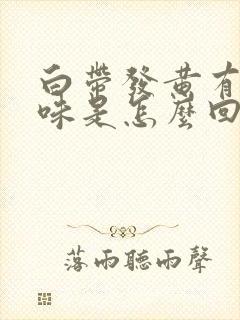 白帶發黃有
味是怎麼回
落雨聽雨聲